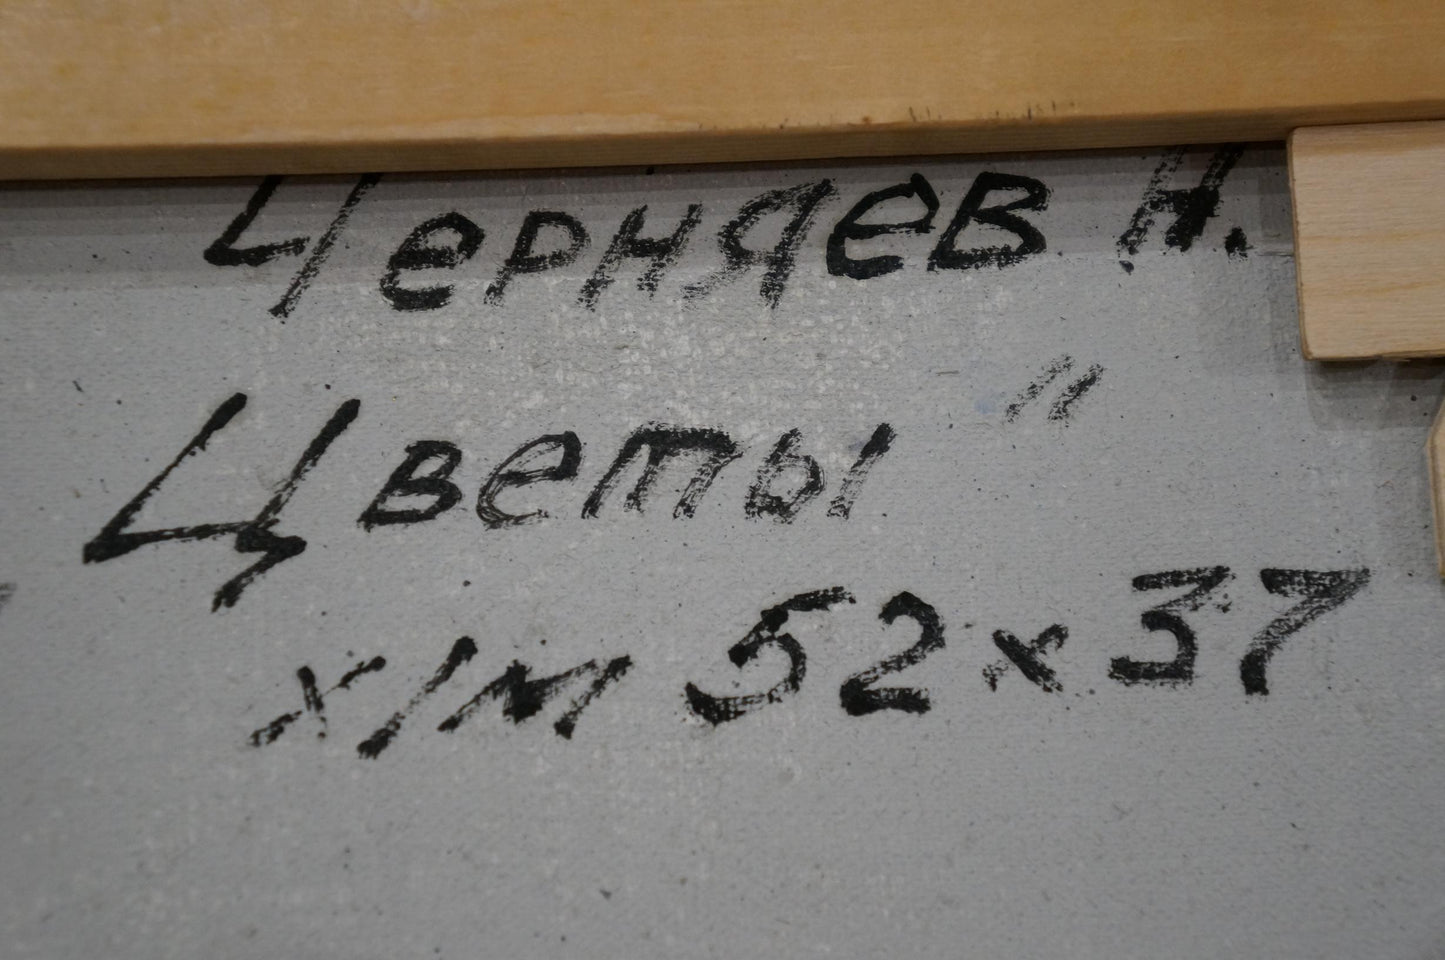 Черняев Н.
Цветы"
х/м 52х37